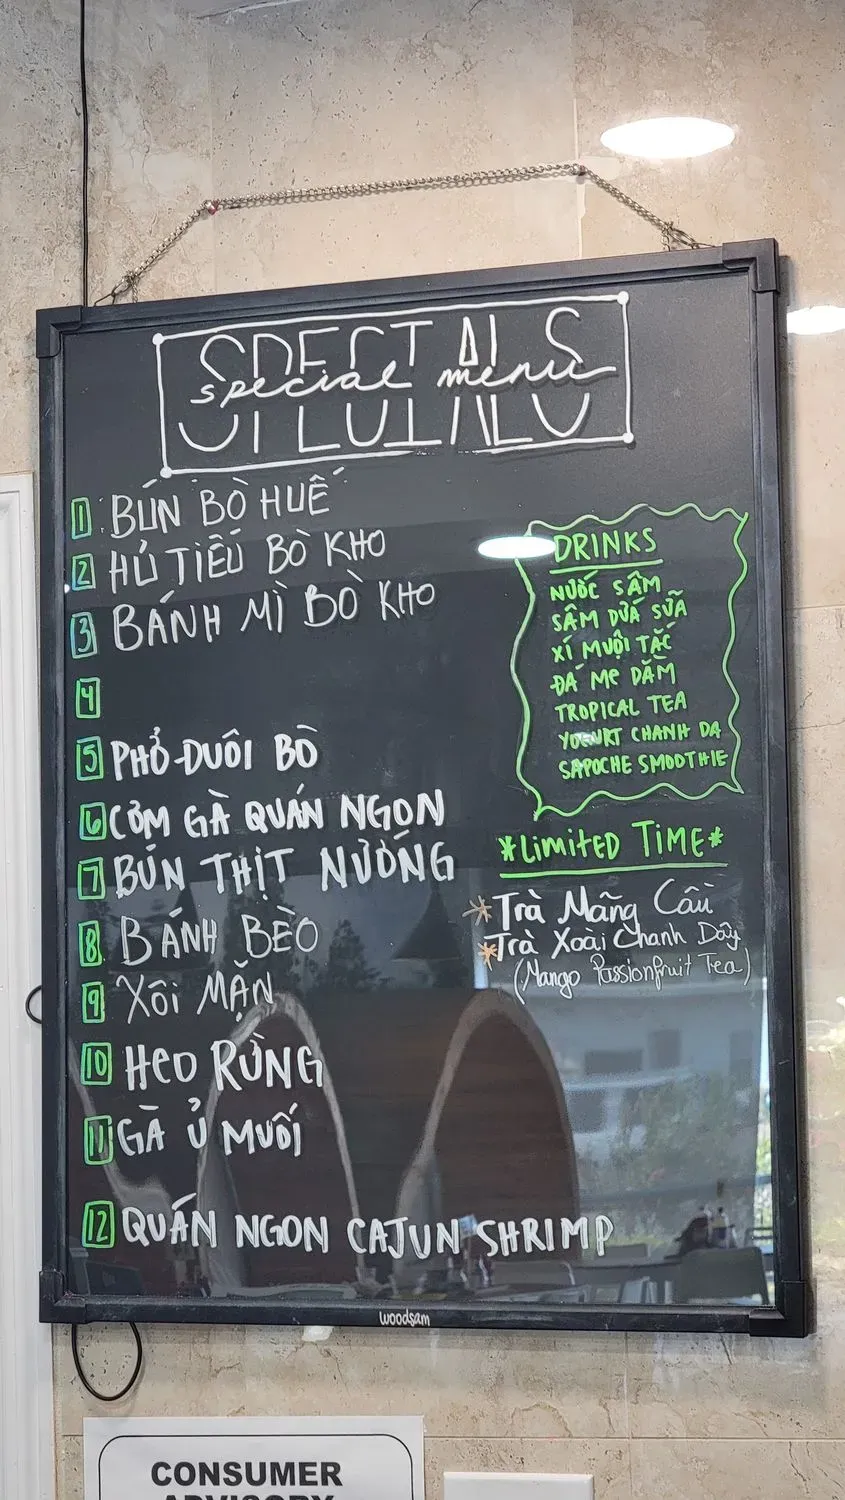 SPECIALS
special menu
1 BÚN BÒ HUẾ
2 HỦ TIẾU BÒ KHO
3 BÁNH MÌ BÒ KHO
4
5 PHỞ ĐUÔI BÒ
6 CƠM GÀ QUÁN NGON
7 BÚN THỊT NƯỚNG
8 BÁNH BÈO
9 XÔI MẶN
10 HEO RỪNG
11 GÀ Ủ MUỐI
12 QUÁN NGON CAJUN SHRIMP
DRINKS
NƯỚC SÂM
SÂM DỨA SỮA
XÍ MUỘI TẮC
ĐÁ ME DẦM
TROPICAL TEA
YOGURT CHANH DA
SAPOCHE SMOOTHIE
*LIMITED TIME*
*Trà Mãng Cầu
*Trà Xoài Chanh Dây
(Mango Passionfruit Tea)
woodsam
CONSUMER
ADVISORY